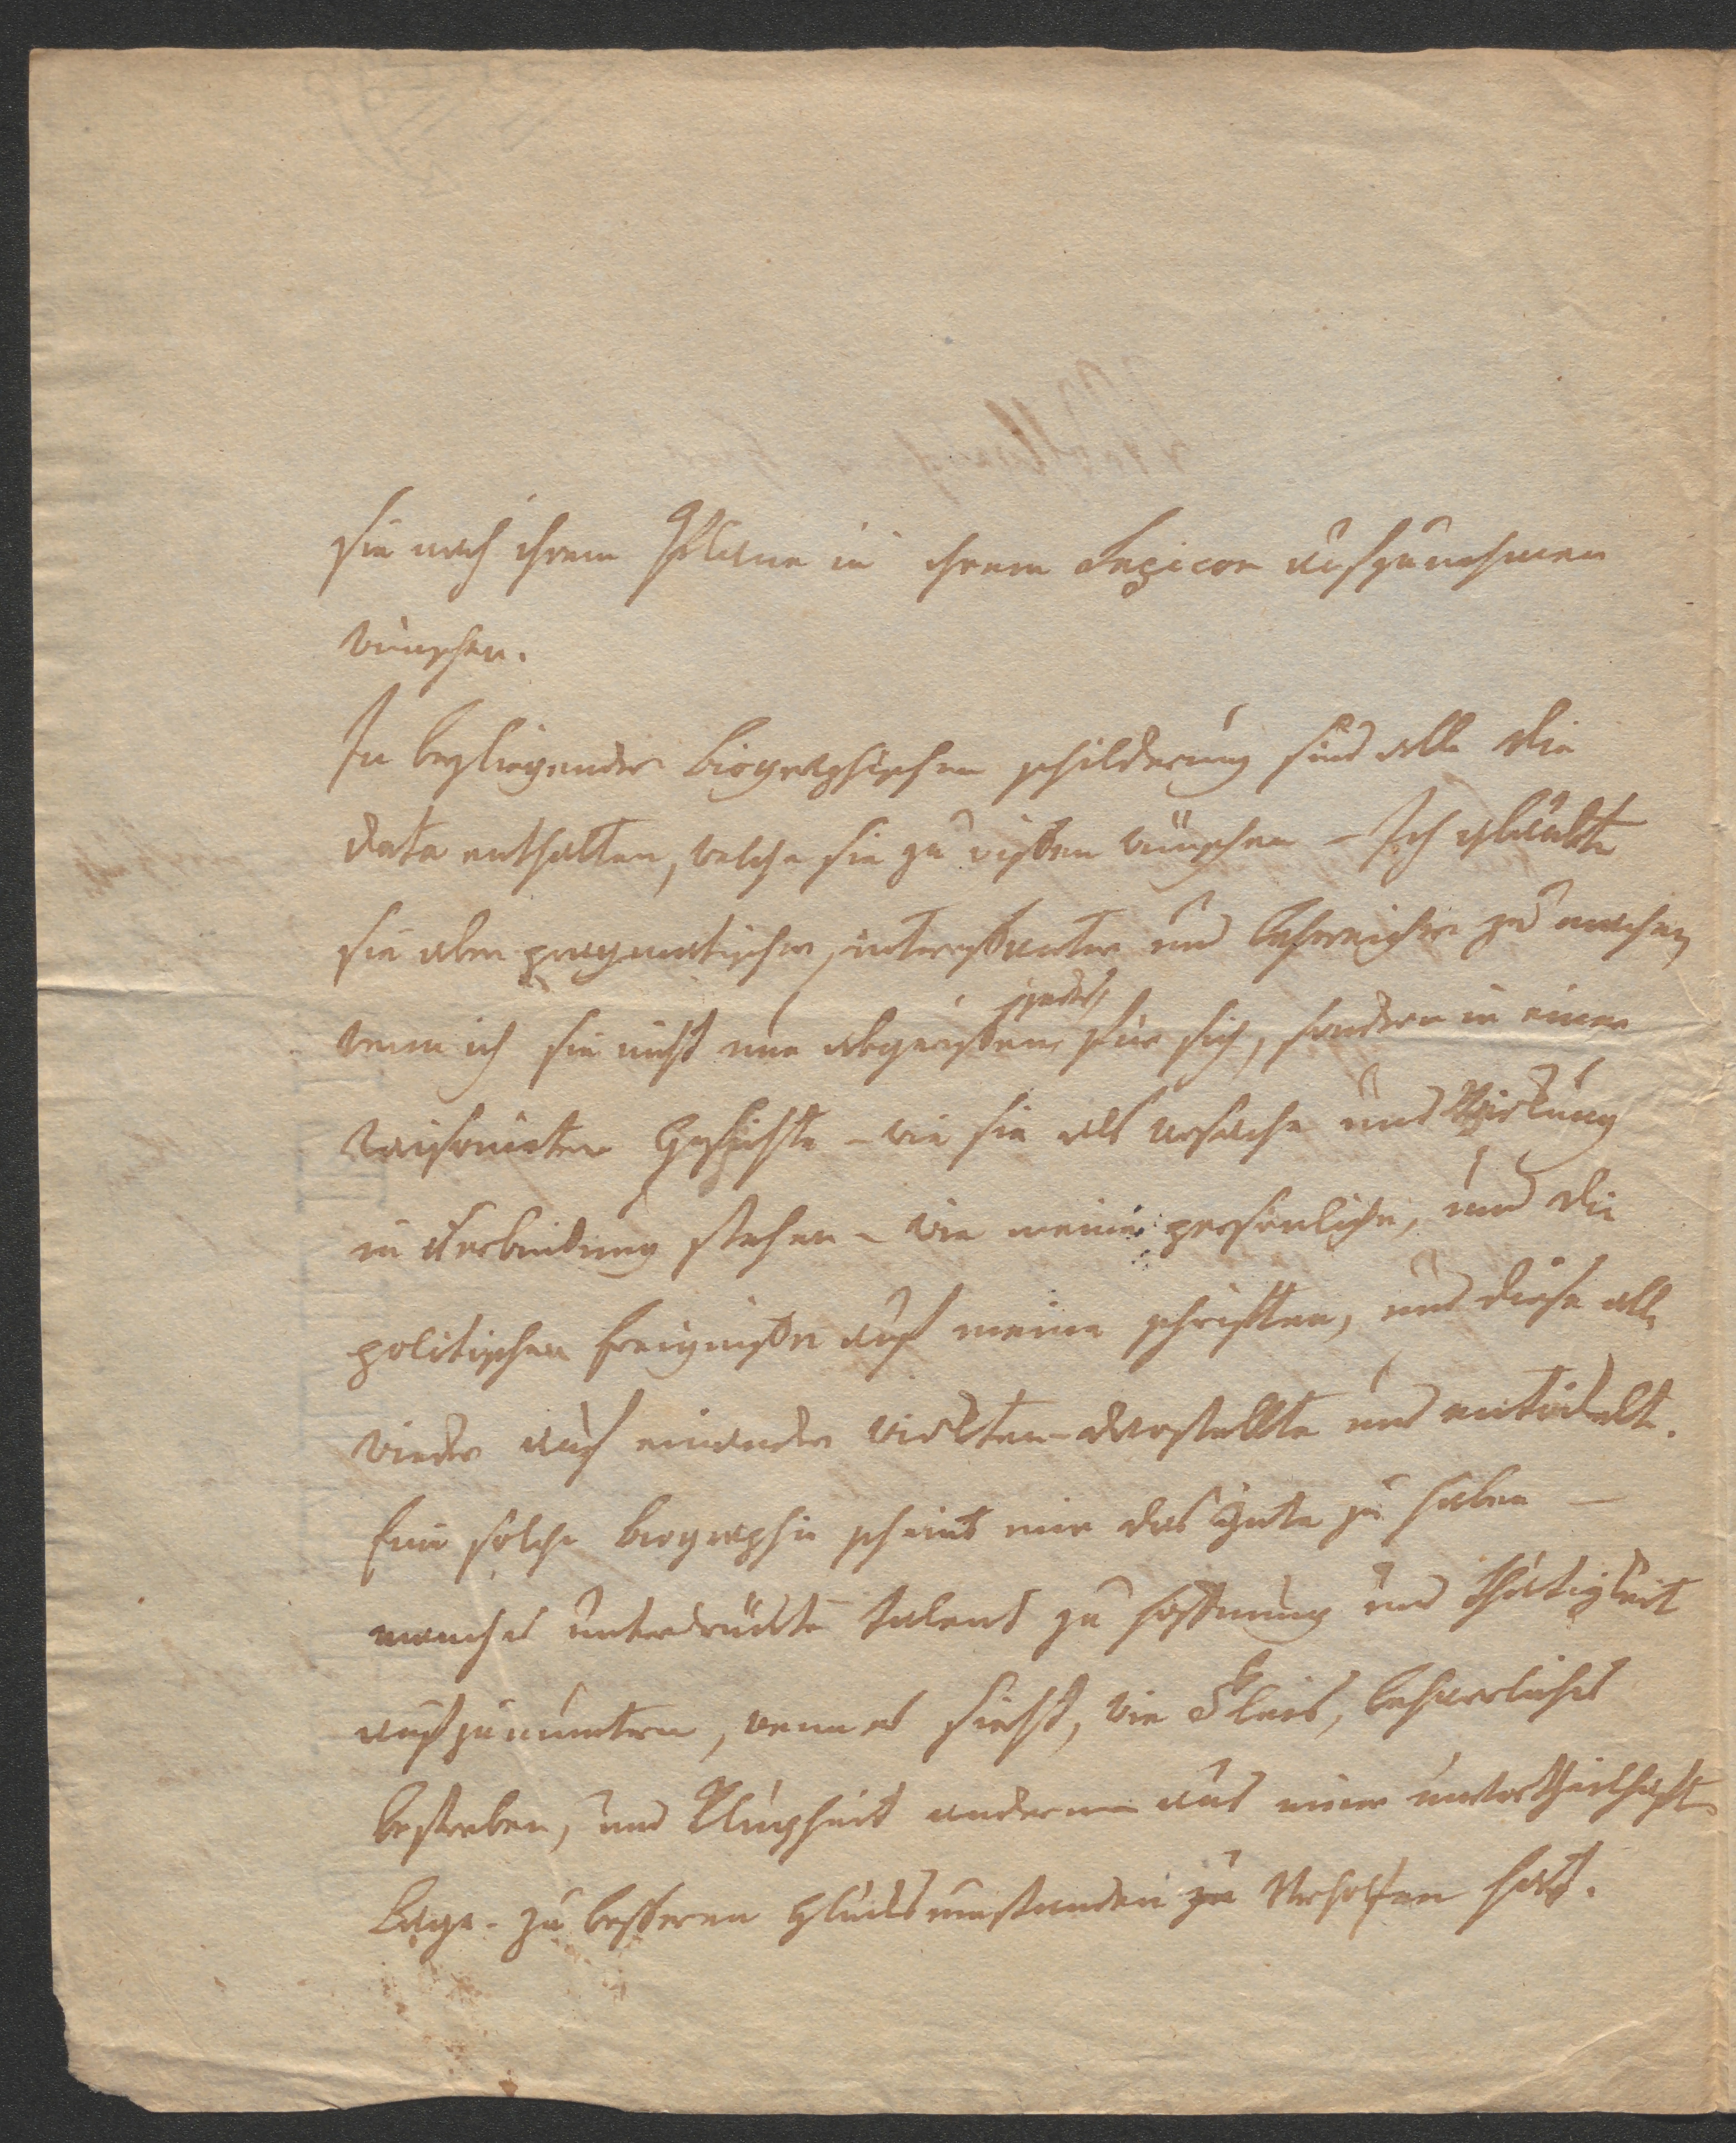 sie nach ihrem Plane in ihrem Lexicon aufzunehmen
wünschen.
In beyliegender biographischen schilderung sind alle die
data enthalten, welche sie zu wissen wünschen – Ich glaubte
sie aber pragmatischer, interessanter und lehrreicher zu machen,
wenn ich sie nicht nur abgerissen, für sich, sondern in einer
raisonirten Geschichte – wie sie als ursache und Wirkung
in Verbindung stehen – wie meine persönliche, und die
politischen Ereignisse auf meine schriften, und diese alle
wieder auf einander wirkten – darstellte und entwickelte.
Eine solche biographie scheint mir das Gute zu haben –
manches unterdrückte talent zu hoffnung und thätigkeit
aufzumuntern, wenn es sieht, wie Fleis, beharrliches
bestreben, und Klugheit anderen aus einer unvortheilhaften
Lage – zu besseren Glücksumstanden zu Verholfen hat.